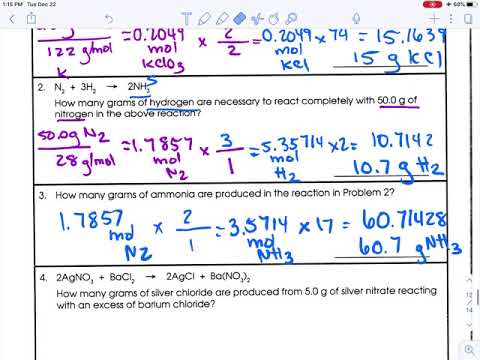 1:15 PM Tue Dec 22
60%
122 g/mol = 0.2049 mol KClO3 × 2/2 = 0.2049 mol KCl × 74 = 15.1639
15 g KCl
2. N₂ + 3H₂ → 2NH₃
How many grams of hydrogen are necessary to react completely with 50.0 g of
nitrogen in the above reaction?
50.0g N2 / 28 g/mol = 1.7857 mol N2 × 3/1 = 5.35714 mol H2 × 2 = 10.7142
10.7 g H2
3. How many grams of ammonia are produced in the reaction in Problem 2?
1.7857 mol N2 × 2/1 = 3.5714 mol NH3 × 17 = 60.71428
60.7 g NH3
4. 2AgNO₃ + BaCl₂ → 2AgCl + Ba(NO₃)₂
How many grams of silver chloride are produced from 5.0 g of silver nitrate reacting
with an excess of barium chloride?
12
14